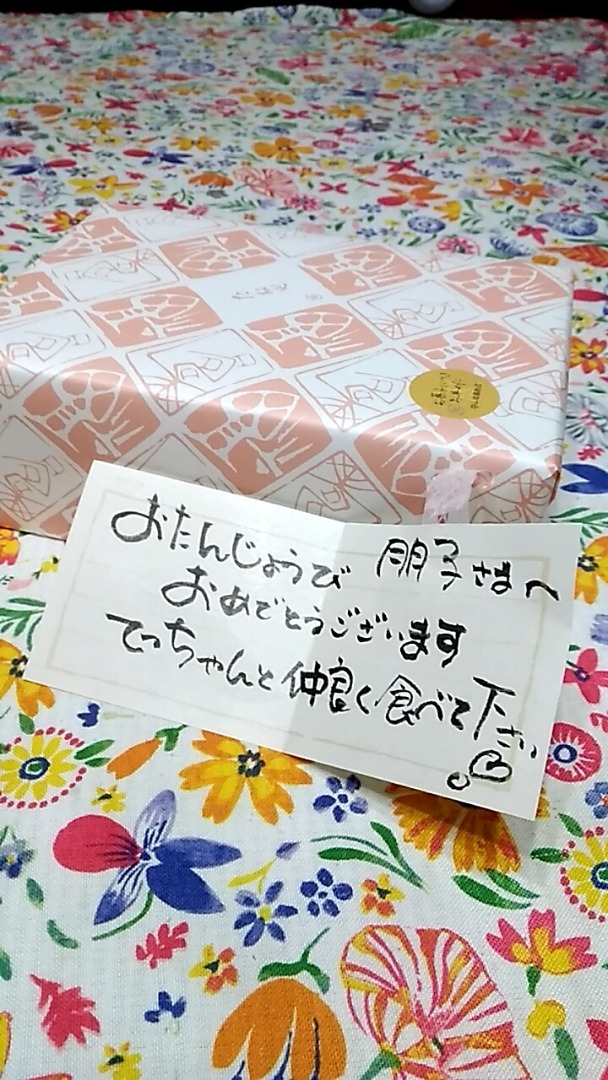 朋子さまへ
おたんじょうび
おめでとうございます
てっちゃんと仲良く食べて下さい